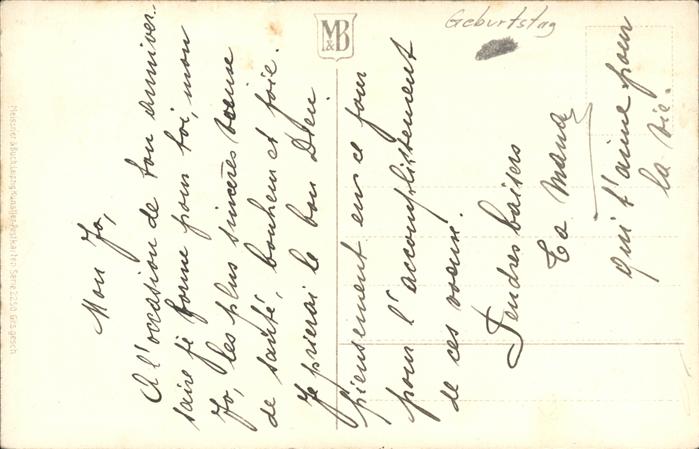 Mon Jo,
A l'occasion de ton anniver-
saire je forme pour toi, mon
Jo, les plus sincères voeux
de santé, bonheur et joie.
Je prierai le bon Dieu
pieusement en ce jour
pour l'accomplissement
de ces voeux.
Tendres baisers
Ta Mana
qui t'aime pour
la vie.
Geburtstag
M&B
Meissner & Buch Leipzig Künstler-Postkarten Serie 2250 Ges. gesch.